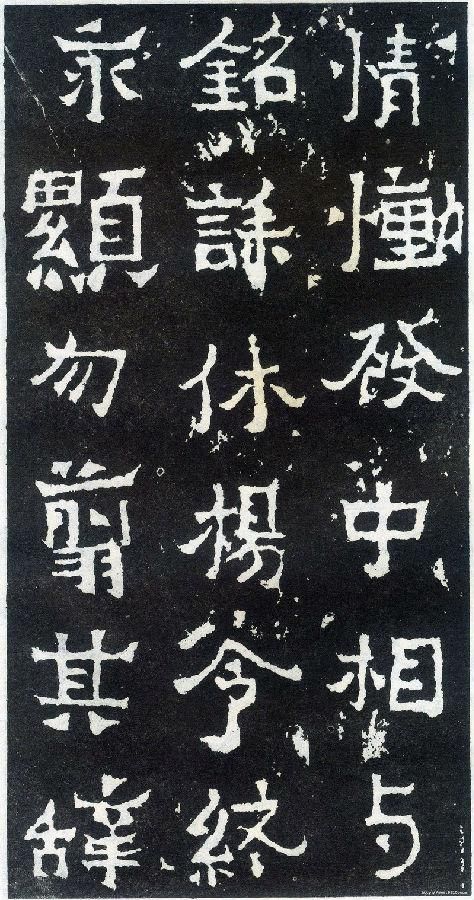 情慟發中相与
銘誄休楊令終
永顯勿翦其辭